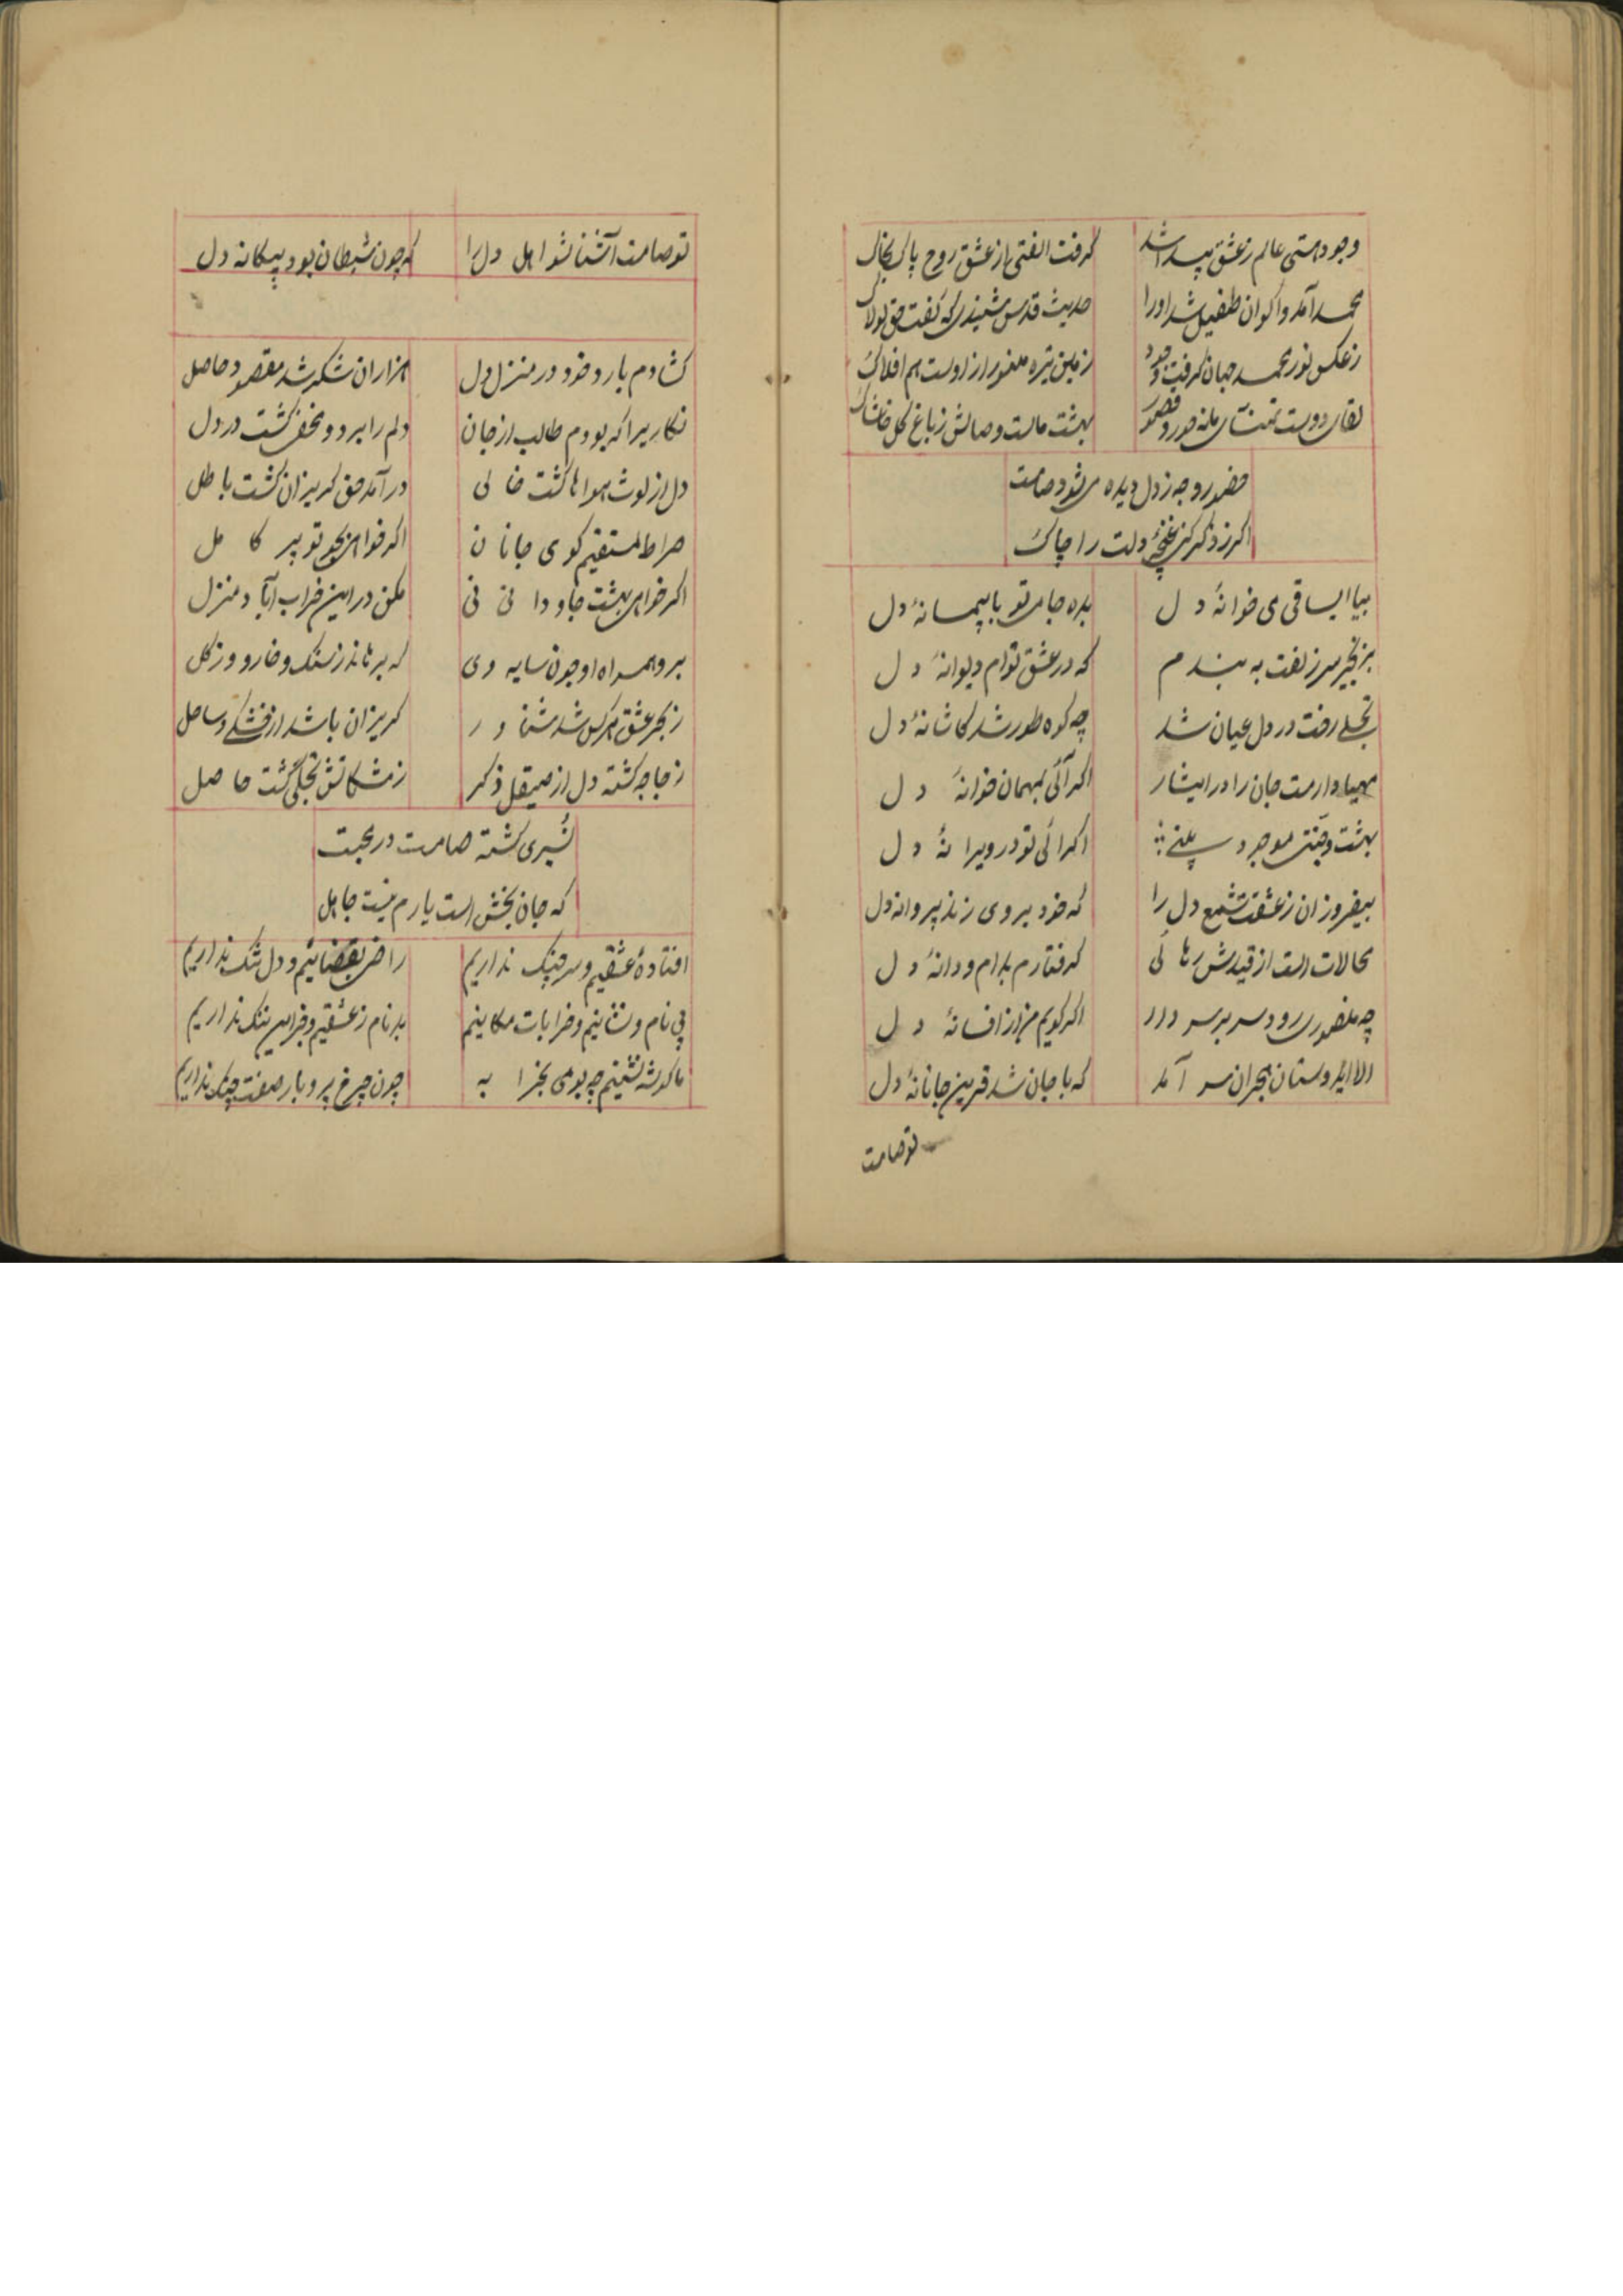 وجود هستی عالم ز عشق پیدا شد گرفت الفتی از عشق روح پاک بخاک
محمد آمد و اکوان طفیل شد او را حدیث قدس شنیدی که گفت حق لولاک
ز عکس نور محمد جهان گرفت وجود زمین تیره منور ازوست هم افلاک
لقای دوست تمنای ما نه حور و قصور بهشت ماست وصالش ز باغ گل خاشاک
حضور وجه ز دل دیده میشود صامت
اگر ز ذکر کنی غنچهٔ دلت را چاک
بیا ایساقی می خوانهٔ دل بده جامی تو با پیمانهٔ دل
بزنجیر سر زلفت به بندم که در عشق توام دیوانهٔ دل
تجلی رخت در دل عیان شد چه کوه طور شد کاشانهٔ دل
مهیا دارمت جان را در ایثار اگر آئی بمهمان خوانهٔ دل
بهشت و جنتی موجود اگر آئی تو در ویرانهٔ دل
بیفروزان ز عشقت شمع دل را که خود بر وی زند پروانه دل
محالات است از قیدش رهائی گرفتارم بدام و دانهٔ دل
چه منصوری رود سر بر سر دار اگر گویم من از افسانهٔ دل
الا ایدوستان هجران سر آمد که با جان شد قرین جانانهٔ دل
تو صامت
تو صامت آشنا شو اهل دل را که چون شیطان بود بیگانه دل
گشادم بار و خود در منزل دل هزاران شکر شد مقصود حاصل
نگاریرا که بودم طالب از جان دلم را برد و مخفی گشت در دل
دل از لوث هواها گشت خالی در آمد حق گریزان گشت باطل
صراط المستقیم کوی جانان اگر خواهی بجو تو پیر کامل
اگر خواهی بهشت جاودانی مکن در این خراب آباد منزل
برو همراه او چون سایه وی که برهاند ز سنگ و خار و وز گل
ز بحر عشق هر کس شد شناور گریزان باشد از خشکی و ساحل
زجاجه گشته دل از صیقل ذکر ز مشکاتش تجلی گشت حاصل
بُسری گشته صامت در محبت
که جان بخش است یارم نیست جاهل
افتادهٔ عشقیم و سر جنگ نداریم راضی بقضائیم و دل تنگ نداریم
بی نام و نشانیم و خرابات مکانیم بدنام ز عشقیم و جز این ننگ نداریم
ما گوشه نشینیم چو بومی بخرابه چون چرخ پر و بار صفت چنگ نداریم